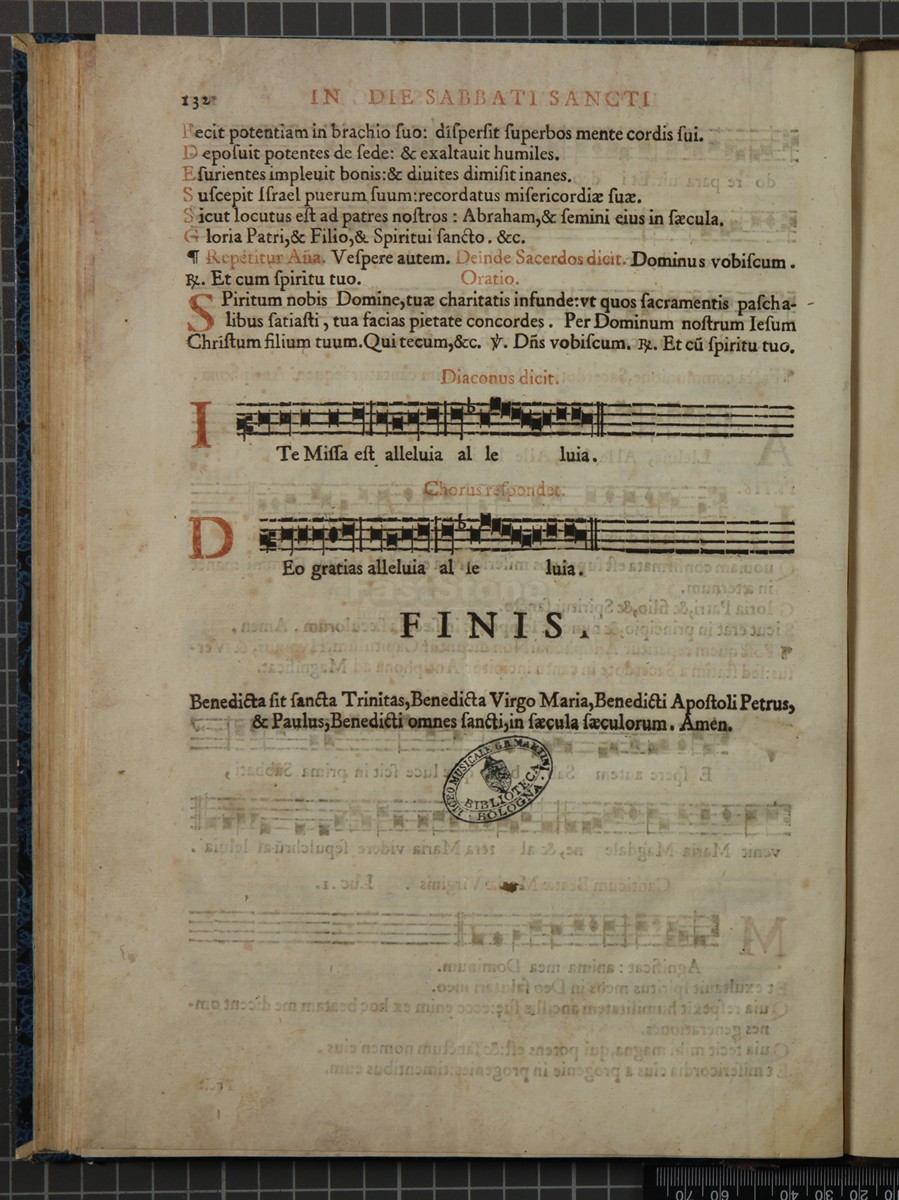 132 IN DIE SABBATI SANCTI
Fecit potentiam in brachio ſuo: diſperſit ſuperbos mente cordis ſui.
Depoſuit potentes de ſede: & exaltauit humiles.
Eſurientes impleuit bonis:& diuites dimiſit inanes.
Suſcepit Iſrael puerum ſuum:recordatus miſericordiæ ſuæ.
Sicut locutus eſt ad patres noſtros : Abraham,& ſemini eius in ſæcula.
Gloria Patri,& Filio,& Spiritui ſancto. &c.
¶ Repetitur Aña. Veſpere autem. Deinde Sacerdos dicit. Dominus vobiſcum.
℟. Et cum ſpiritu tuo. Oratio.
SPiritum nobis Domine,tuæ charitatis infunde:vt quos ſacramentis paſcha-
libus ſatiaſti, tua facias pietate concordes. Per Dominum noſtrum Ieſum
Chriſtum filium tuum.Qui tecum,&c. ℣. Dñs vobiſcum. ℟. Et cũ ſpiritu tuo.
Diaconus dicit.
ITe Miſſa eſt alleluia al le luia.
Chorus reſpondet.
DEo gratias alleluia al le luia.
FINIS.
Benedicta ſit ſancta Trinitas,Benedicta Virgo Maria,Benedicti Apoſtoli Petrus,
& Paulus,Benedicti omnes ſancti,in ſæcula ſæculorum. Amen.
LICEO MUSICALE G.B. MARTINI
BIBLIOTECA
BOLOGNA
70 60 50 40 30 20 10 0